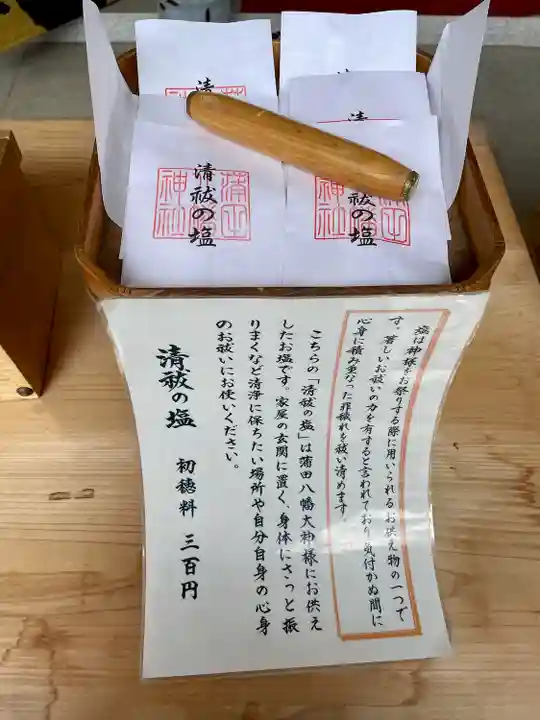 清祓の塩
清
清祓の塩
神社
祓の塩
神社
塩は神様をお祭りする際に用いられるお供え物の一つで
す。著しいお祓いの力を有すると言われており、気付かぬ間に
心身に積み重なった罪穢れを祓い清めます。
こちらの「清祓の塩」は蒲田八幡大神様にお供え
したお塩です。家屋の玄関に置く、身体にさっと振
りまくなど清浄に保ちたい場所や自分自身の心身
のお祓いにお使いください。
清祓の塩　初穂料　三百円